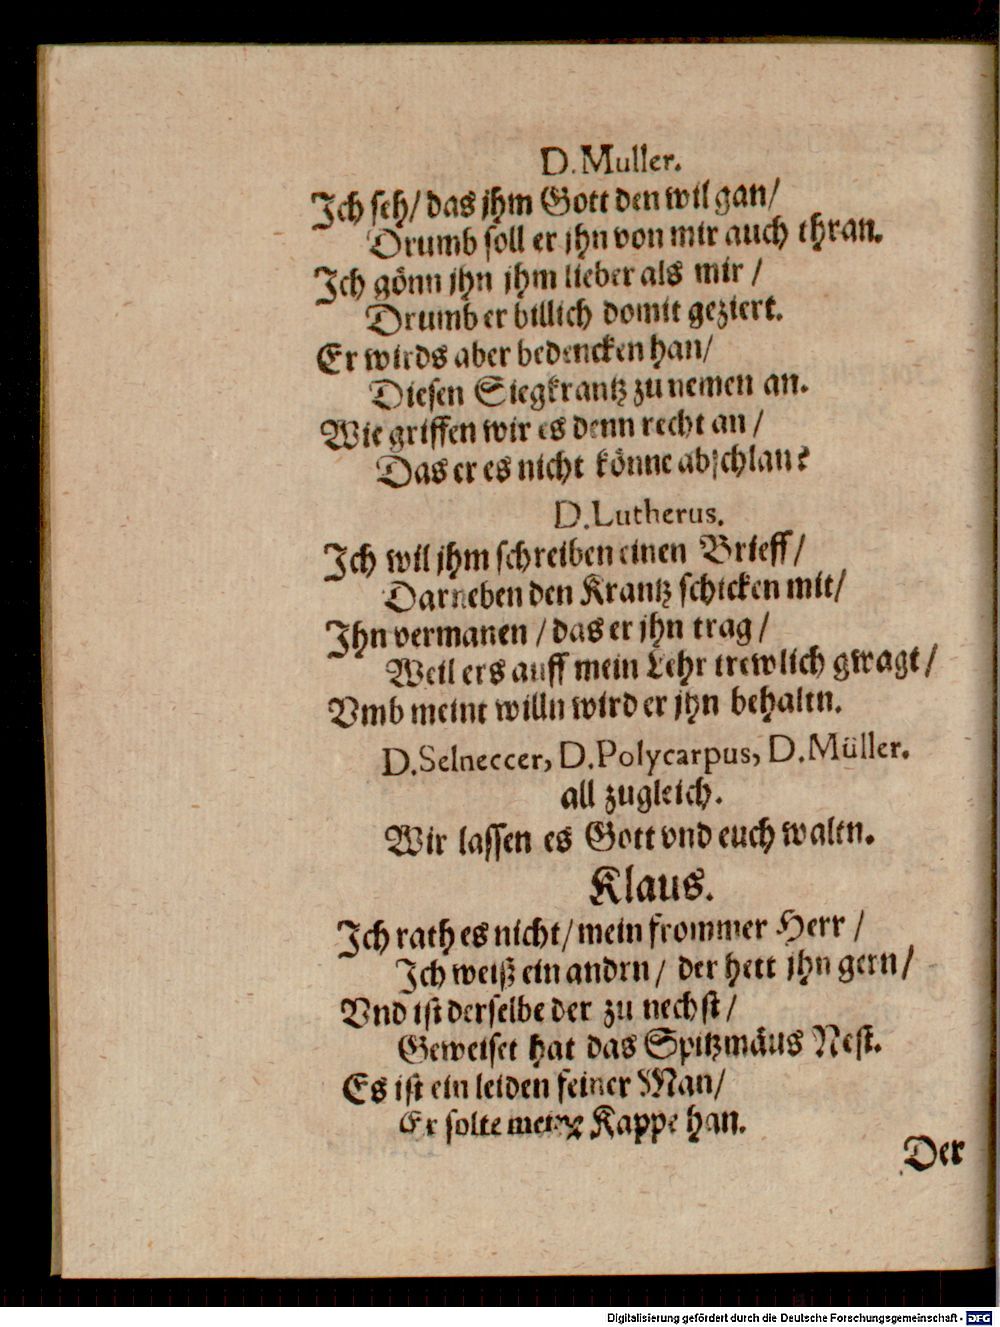 D. Muller.
Ich seh/ das jhm Gott den wil gan/
Drumb soll er jhn von mir auch thran.
Ich gönn jhn jhm lieber als mir /
Drumb er billich domit geziert.
Er wirds aber bedencken han/
Diesen Siegkrantz zu nemen an.
Wie griffen wir es denn recht an /
Das er es nicht könne abschlan?
D. Lutherus.
Ich wil jhm schreiben einen Brieff/
Darneben den Krantz schicken mit/
Ihn vermanen / das er jhn trag /
Weil ers auff mein Lehr trewlich gwagt/
Vmb meint willn wird er jhn behaltn.
D. Selneccer, D. Polycarpus, D. Müller.
all zugleich.
Wir lassen es Gott vnd euch waltn.
Klaus.
Ich rath es nicht/ mein frommer Herr /
Ich weiß ein andrn/ der hett jhn gern/
Vnd ist derselbe der zu nechst/
Geweiset hat das Spitzmäus Nest.
Es ist ein leiden feiner Man/
Er solte meine Kappe han.
Der
Digitalisierung gefördert durch die Deutsche Forschungsgemeinschaft - DFG